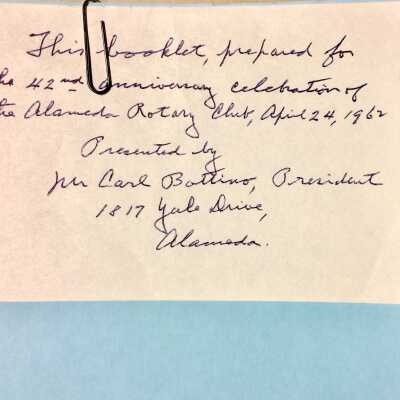 This booklet, prepared for
the 42nd anniversary celebration of
the Alameda Rotary Club, April 24, 1962
Presented by
Mr Carl Bottino, President
1817 Yale Drive,
Alameda.